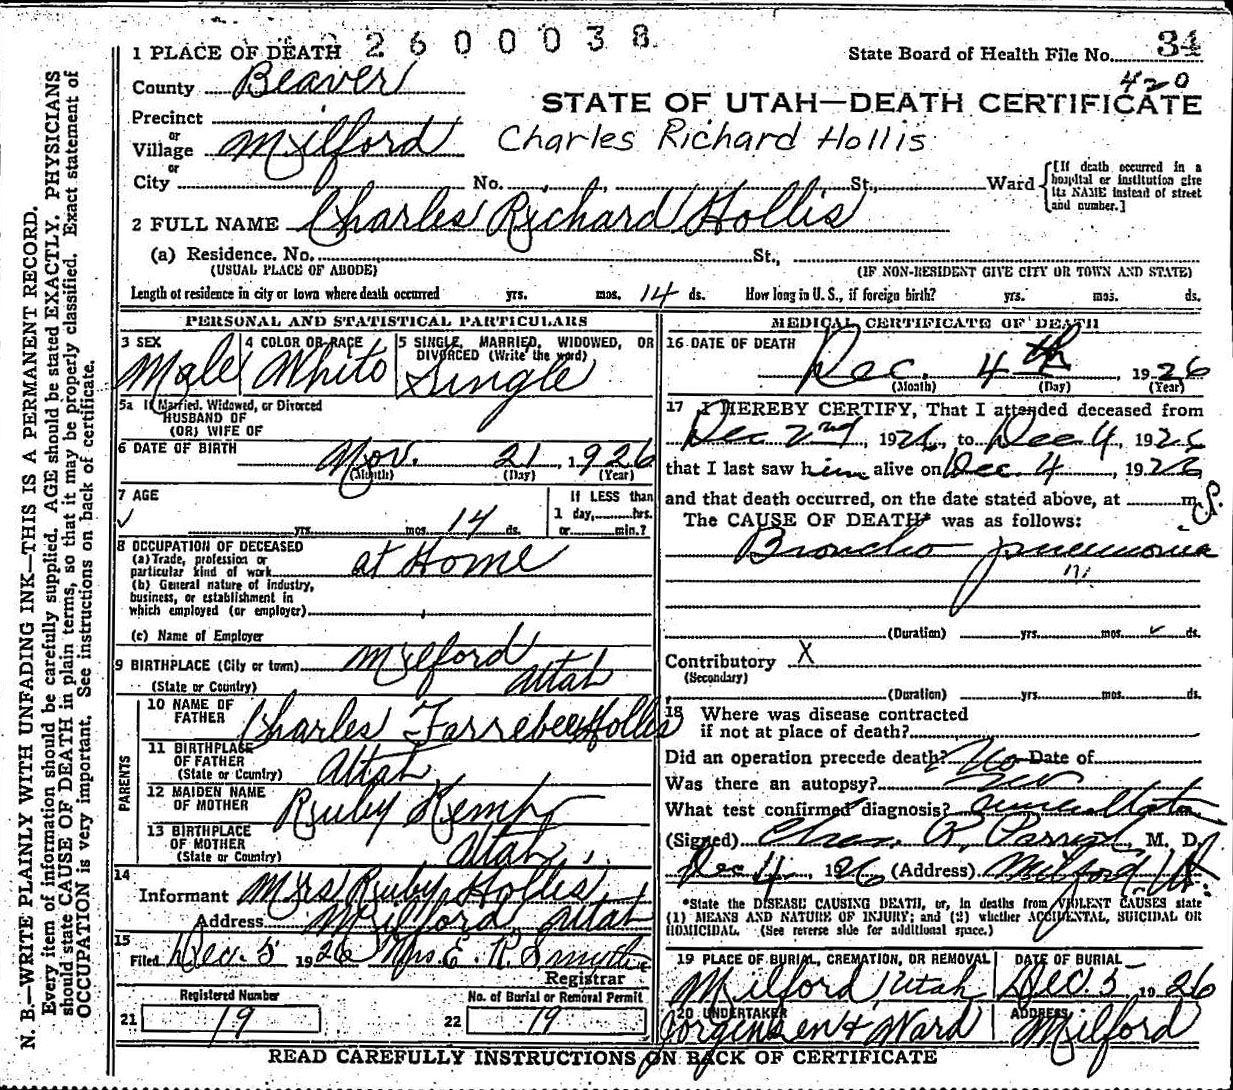 2600038
1 PLACE OF DEATH
State Board of Health File No. 34
County Beaver
420
STATE OF UTAH—DEATH CERTIFICATE
Precinct
or
Village Milford
Charles Richard Hollis
or
City No. St., Ward
[If death occurred in a hospital or institution give its NAME instead of street and number.]
2 FULL NAME Charles Richard Hollis
(a) Residence. No. St.,
(USUAL PLACE OF ABODE) (IF NON-RESIDENT GIVE CITY OR TOWN AND STATE)
Length of residence in city or town where death occurred yrs. mos. 14 ds. How long in U. S., if foreign birth? yrs. mos. ds.
PERSONAL AND STATISTICAL PARTICULARS
3 SEX Male
4 COLOR OR RACE White
5 SINGLE, MARRIED, WIDOWED, OR DIVORCED (Write the word) Single
5a If Married, Widowed, or Divorced
HUSBAND OF
(OR) WIFE OF
6 DATE OF BIRTH Nov. 21, 1926
(Month) (Day) (Year)
7 AGE
yrs. mos. 14 ds.
If LESS than
1 day, hrs.
or min.?
8 OCCUPATION OF DECEASED
(a) Trade, profession or
particular kind of work at Home
(b) General nature of industry,
business, or establishment in
which employed (or employer)
(c) Name of Employer
9 BIRTHPLACE (City or town) Milford
(State or Country) Utah
PARENTS
10 NAME OF FATHER Charles Farrebee Hollis
11 BIRTHPLACE OF FATHER
(State or Country) Utah
12 MAIDEN NAME OF MOTHER Ruby Kemp
13 BIRTHPLACE OF MOTHER
(State or Country) Utah
14
Informant Mrs Ruby Hollis
Address Milford, Utah
15
Filed Dec. 5 1926 Mrs. E. R. Smith
Registrar
Registered Number
21 19
No. of Burial or Removal Permit
22 19
MEDICAL CERTIFICATE OF DEATH
16 DATE OF DEATH
Dec. 4th, 1926
(Month) (Day) (Year)
17 I HEREBY CERTIFY, That I attended deceased from
Dec 2nd, 1926, to Dec 4, 1926
that I last saw him alive on Dec. 4, 1926
and that death occurred, on the date stated above, at m.
The CAUSE OF DEATH* was as follows:
Broncho pneumonia
(Duration) yrs. mos. ds.
Contributory X
(Secondary)
(Duration) yrs. mos. ds.
18 Where was disease contracted
if not at place of death?
Did an operation precede death? No Date of
Was there an autopsy? No
What test confirmed diagnosis?
(Signed) Chas. R. Parrish, M. D.
Dec 4, 1926 (Address) Milford, Ut.
*State the DISEASE CAUSING DEATH, or, in deaths from VIOLENT CAUSES state
(1) MEANS AND NATURE OF INJURY; and (2) whether ACCIDENTAL, SUICIDAL OR
HOMICIDAL. (See reverse side for additional space.)
19 PLACE OF BURIAL, CREMATION, OR REMOVAL
Milford, Utah
DATE OF BURIAL
Dec. 5, 1926
20 UNDERTAKER
Jorgensen & Ward
ADDRESS
Milford
READ CAREFULLY INSTRUCTIONS ON BACK OF CERTIFICATE
N. B.—WRITE PLAINLY WITH UNFADING INK—THIS IS A PERMANENT RECORD.
Every item of information should be carefully supplied. AGE should be stated EXACTLY. PHYSICIANS
should state CAUSE OF DEATH in plain terms, so that it may be properly classified. Exact statement of
OCCUPATION is very important. See instructions on back of certificate.